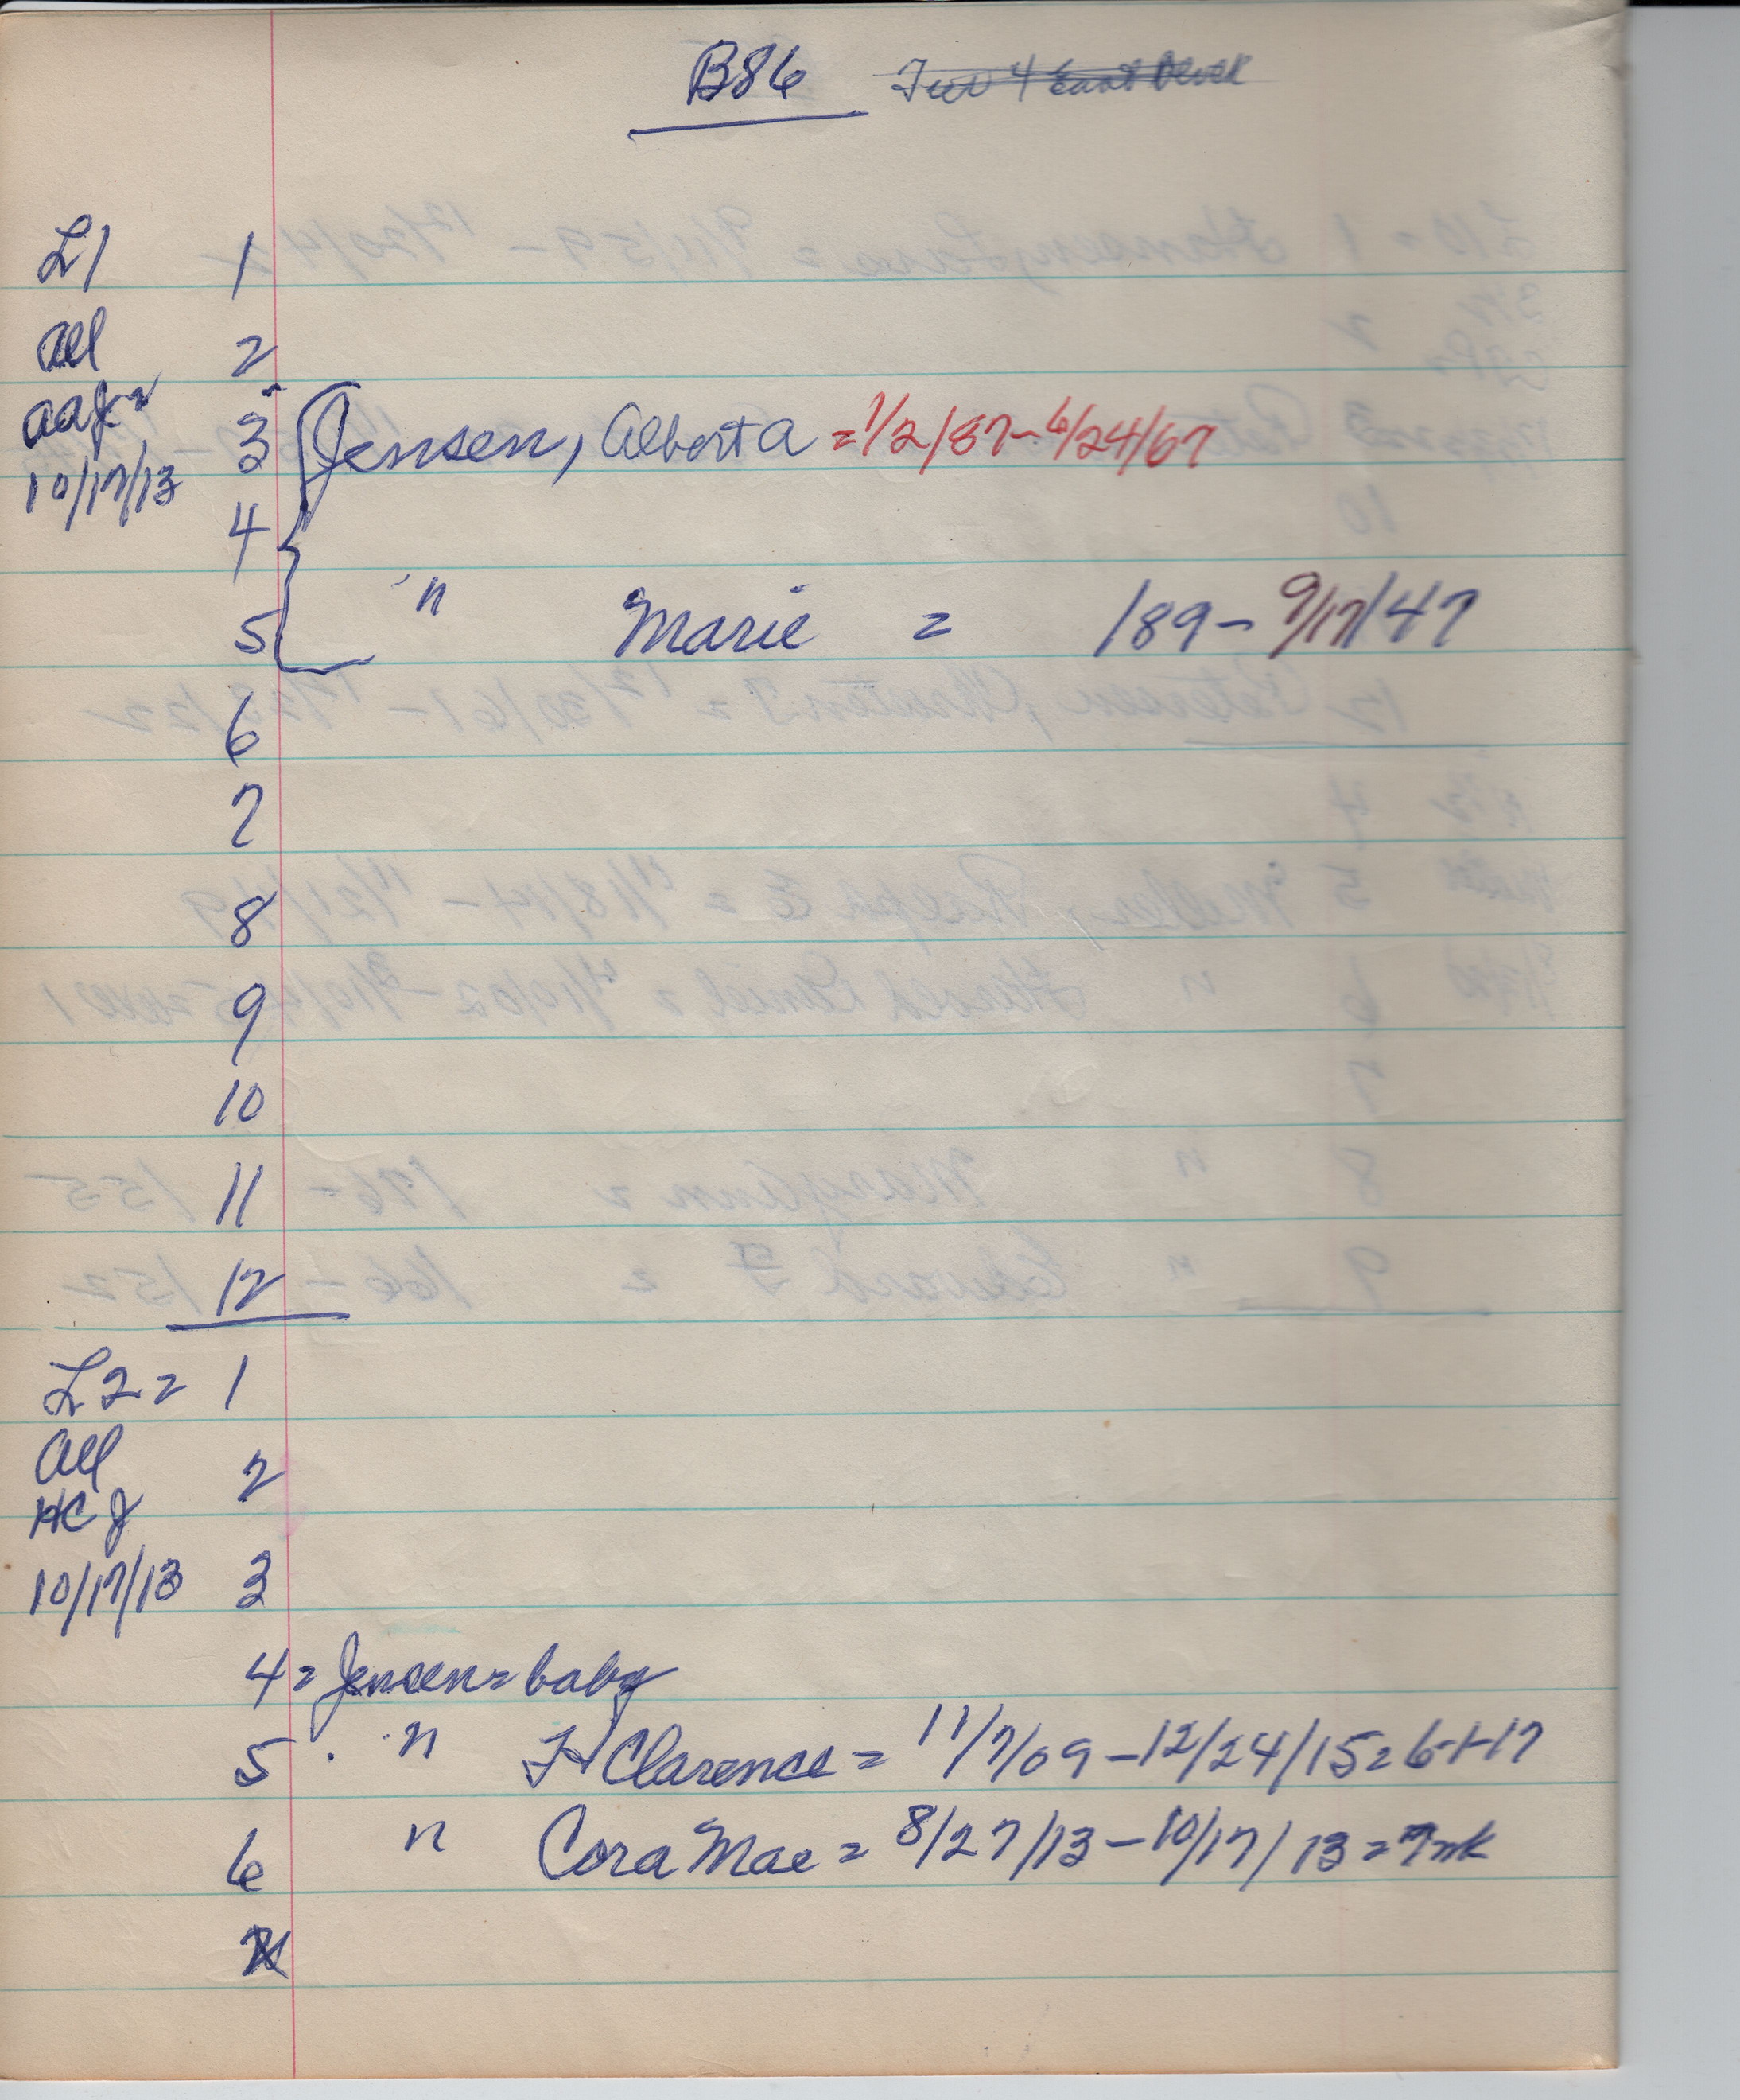 B86
L1 1
all 2
3 Jensen, Alberta = 1/2/87 - 6/24/67
10/17/13
4
5 " Marie = /89 - 9/17/47
6
7
8
9
10
11
12
L2 = 1
all 2
HCJ
10/17/13 3
4 = Jensen = baby
5 " H Clarence = 11/7/09 - 12/24/15 = 6-1-17
6 " Cora Mae = 8/27/13 - 10/17/13 =